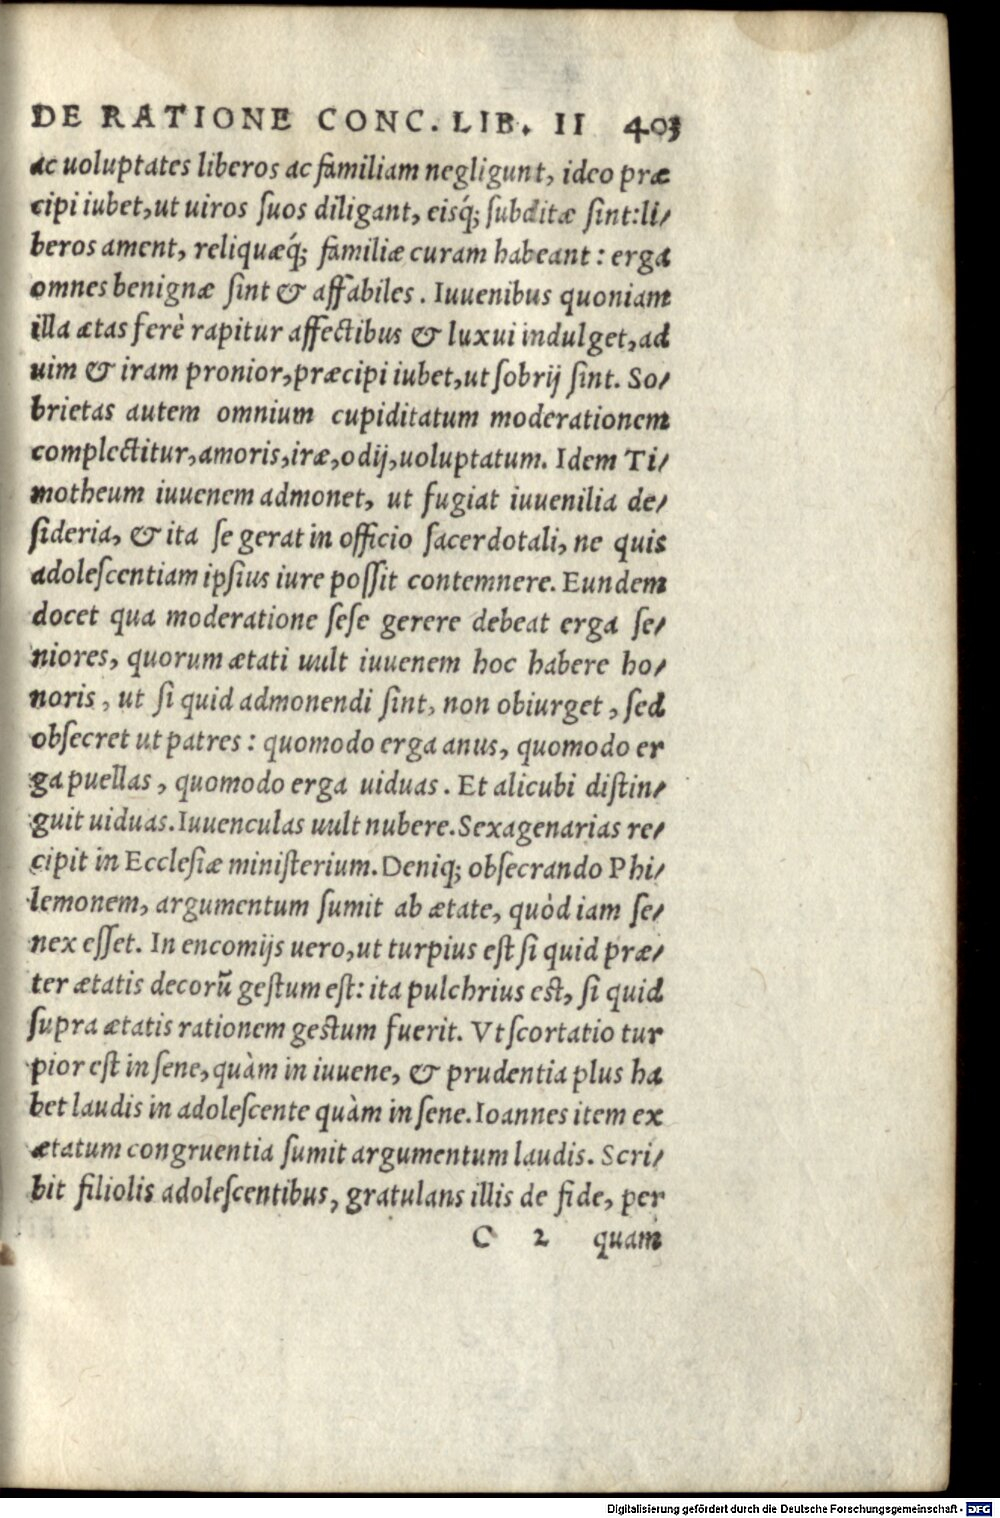 DE RATIONE CONC. LIB. II 403
ac uoluptates liberos ac familiam negligunt, ideo præ
cipi iubet, ut uiros ſuos diligant, eisq́; ſubditæ ſint: li/
beros ament, reliquæq́; familiæ curam habeant: erga
omnes benignæ ſint & affabiles. Iuuenibus quoniam
illa ætas ferè rapitur affectibus & luxui indulget, ad
uim & iram pronior, præcipi iubet, ut ſobrij ſint. So/
brietas autem omnium cupiditatum moderationem
complectitur, amoris, iræ, odij, uoluptatum. Idem Ti/
motheum iuuenem admonet, ut fugiat iuuenilia de/
ſideria, & ita ſe gerat in officio ſacerdotali, ne quis
adoleſcentiam ipſius iure poſſit contemnere. Eundem
docet qua moderatione ſeſe gerere debeat erga ſe/
niores, quorum ætati uult iuuenem hoc habere ho/
noris, ut ſi quid admonendi ſint, non obiurget, ſed
obſecret ut patres: quomodo erga anus, quomodo er
ga puellas, quomodo erga uiduas. Et alicubi diſtin/
guit uiduas. Iuuenculas uult nubere. Sexagenarias re/
cipit in Eccleſiæ miniſterium. Deniq; obſecrando Phi/
lemonem, argumentum ſumit ab ætate, quòd iam ſe/
nex eſſet. In encomijs uero, ut turpius eſt ſi quid præ/
ter ætatis decorũ geſtum eſt: ita pulchrius est, ſi quid
ſupra ætatis rationem gestum fuerit. Vt ſcortatio tur
pior eſt in ſene, quàm in iuuene, & prudentia plus ha
bet laudis in adoleſcente quàm in ſene. Ioannes item ex
ætatum congruentia ſumit argumentum laudis. Scri/
bit filiolis adoleſcentibus, gratulans illis de fide, per
C 2 quam
Digitalisierung gefördert durch die Deutsche Forschungsgemeinschaft - DFG